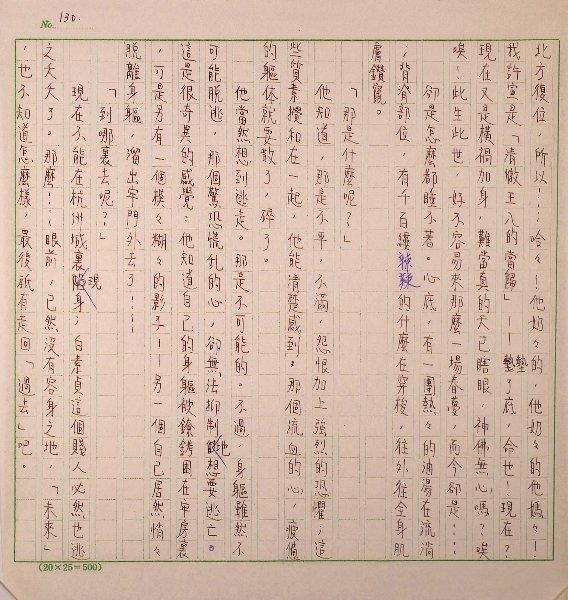 No. 130.
北方復位，所以……哈々！他奶々的，他奶々的他媽々！
我許宣是「清燉王八的當歸」——墊了底，命也！現在？
現在又是橫禍加身，難當真的天已瞎眼，神佛無心嗎？唉
唉！此生此世，好不容易來那麼一場春夢，而今卻是……
卻是怎麼都睡不著。心底，有一團熱々的油湯在流淌
；背脊部位，有千百縷辣辣的什麼在穿梭，往外往全身肌
膚鑽竄。
「那是什麼呢？」
他知道，那是不平，不滿，怨恨加上強烈的恐懼；這
些質素攪和在一起，他能清楚感到，那個流血的心，疲憊
的軀体就要散了，碎了。
他當然想到逃走。那是不可能的。不過，身軀雖然不
可能脫逃，那個驚恐慌乱的心，卻無法抑制他想要逃亡。
這是很奇異的感覺：他知道自己的身軀被鐐銬困在牢房裏
，可是另有一個模々糊々的影子——另一個自己居然悄々
脫離身軀，溜出牢門外去了！……
「到哪裏去呢？」
現在不能在杭州城裏現身；白素貞這個賤人必然也逃
之夭夭了。那麼……眼前，已然沒有容身之地，「未來」
，也不知道怎麼樣，最後祇有走回「過去」吧。
(20×25=500)